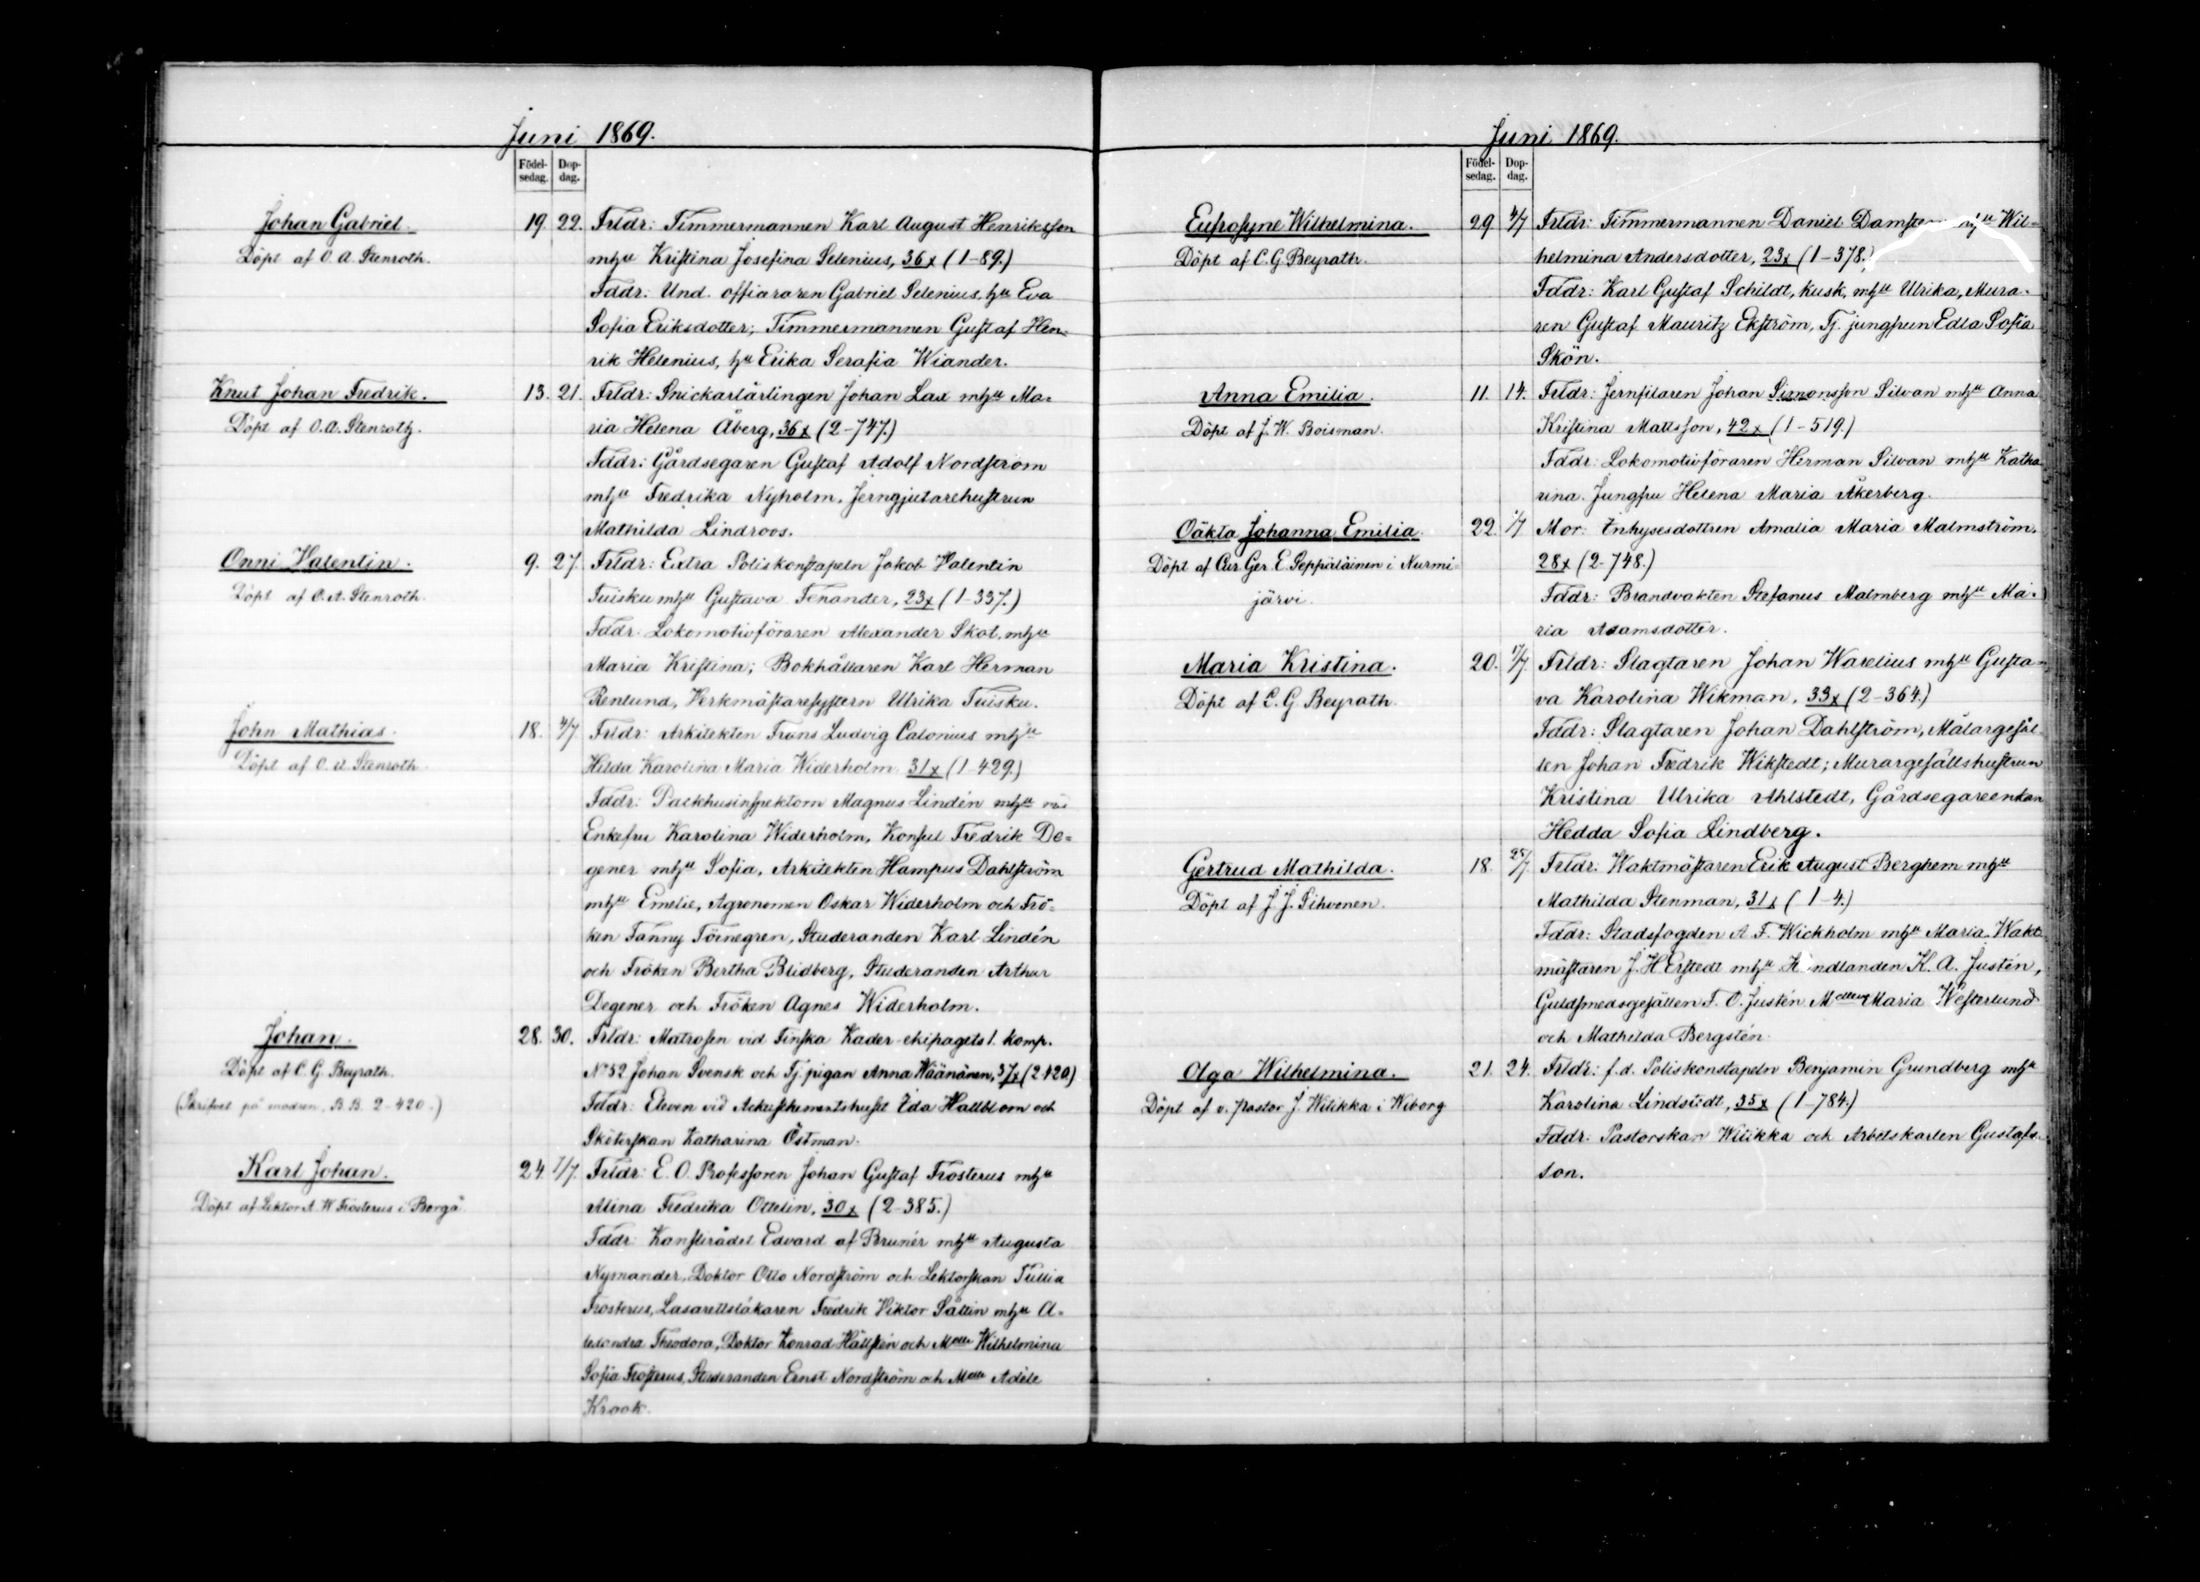 Juni 1869.
Födel-
sedag.
Dop-
dag.
Johan Gabriel.
Döpt af O. A. Stenroth.
19. 22. Frldr: Timmermannen Karl August Henriksson
mhu Kristina Josefina Selenius, 36x (1-89.)
Fddr: Und. officararen Gabriel Selenius, hu Eva
Sofia Eriksdotter; Timmermannen Gustaf Hen-
rik Helenius, hu Erika Serafia Wiander.
Knut Johan Fredrik.
Döpt af O. A. Stenroth.
13. 21. Frldr: Snickarlärlingen Johan Lax mhu Ma-
ria Helena Åberg, 36x (2-747.)
Fddr: Gårdsegaren Gustaf Adolf Nordström
mhu Fredrika Nyholm, Jerngjutarehustrun
Mathilda Lindroos.
Onni Valentin.
Döpt af O. A. Stenroth.
9. 27. Frldr: Extra Poliskonstapeln Jakob Valentin
Tuisku mhu Gustava Fenander, 23x (1-337.)
Fddr: Lokomotivföraren Alexander Skot, mhu
Maria Kristina; Bokhållaren Karl Herman
Renlund, Verkmästaresystern Ulrika Tuisku.
John Mathias.
Döpt af O. A. Stenroth.
18. 4/7 Frldr: Arkitekten Frans Ludvig Calonius mhu
Hilda Karolina Maria Widerholm 31x (1-429.)
Fddr: Packhusinspektorn Magnus Lindén mhu
Enkefru Karolina Widerholm, Konsul Fredrik De-
gener mhu Sofia, Arkitekten Hampus Dahlström
mhu Emelie, Agronomen Oskar Widerholm och Frö-
ken Fanny Törnegren, Studeranden Karl Lindén
och Fröken Bertha Blidberg, Studeranden Arthur
Degener och Fröken Agnes Widerholm.
Johan.
Döpt af C. G. Beyrath.
(Skrifvet på modren, B.B. 2-420.)
28. 30. Frldr: Matrosen vid Finska Kader-ekipagets 1. komp.
No 52 Johan Svensk och Tj. pigan Anna Wäänänen, 37x (2-420)
Fddr: Eleven vid Ackuschementshuset Ida Hallblom och
Sköterskan Katharina Östman.
Karl Johan.
Döpt af Lektor A. W. Frosterus i Borgå
24 1/7. Frldr: E. O. Professoren Johan Gustaf Frosterus mhu
Alina Fredrika Ottelin, 30x (2-385.)
Fddr: Kanslirådet Edvard af Brunér mhu Augusta
Nymander, Doktor Otto Nordström och Lektorskan Tullia
Frosterus, Lasarettsläkaren Fredrik Viktor Sältin mhu A-
lexandra Theodora, Doktor Konrad Hällstén och Mlle Wilhelmina
Sofia Frosterus, Studeranden Ernst Nordström och Mlle Adéle
Krook.
Juni 1869.
Födel-
sedag.
Dop-
dag.
Eufrosyne Wilhelmina.
Döpt af C. G. Beyrath.
29 4/7 Frldr: Timmermannen Daniel Wil-
helmina Andersdotter, 23x (1-378.)
Fddr: Karl Gustaf Schildt, kusk, mhu Ulrika, Mura-
ren Gustaf Mauritz Ekström, Tj. jungfrun Edla Sofia
Skön.
Anna Emilia.
Döpt af J. W. Boisman.
11. 14. Frldr: Jernfilaren Johan Simonsson Silvan mhu Anna
Kristina Mattsson, 42x (1-519.)
Fddr: Lokomotivföraren Herman Silvan mhu Katha-
rina. Jungfru Helena Maria Åkerberg.
Oäkta Johanna Emilia.
Döpt af Cur. Ger. E. Peppäläinen i Nurmi-
järvi.
22. 1/7 Mor: Inhysesdottren Amalia Maria Malmström.
28x (2-748.)
Fddr: Brandvakten Stefanus Malmberg mhu Ma-
ria Adamsdotter.
Maria Kristina.
Döpt af C. G. Beyrath.
20. 1/7 Frldr: Slagtaren Johan Warelius mhu Gusta-
va Karolina Wikman, 33x (2-364.)
Fddr: Slagtaren Johan Dahlström, Målargesäl-
len Johan Fredrik Wikstedt; Murargesällshustrun
Kristina Ulrika Ahlstedt, Gårdsegareenkan
Hedda Sofia Lindberg.
Gertrud Mathilda.
Döpt af J. J. Sihvonen.
18. 25/7 Frldr: Waktmästaren Erik August Berghem mhu
Mathilda Stenman, 31x (1-4.)
Fddr: Stadsfogden A. F. Wickholm mhu Maria, Wakt-
mästaren J. H. Erstedt mhu Handlanden K. A. Justén,
Guldsmedsgesällen F. O. Justén Mlle Maria Westerlund
och Mathilda Bergstén.
Olga Wilhelmina.
Döpt af v. pastor J. Wilikka i Wiborg
21. 24. Frldr: f. d. Poliskonstapeln Benjamin Grundberg mhu
Karolina Lindstedt, 35x (1-784.)
Fddr: Pastorskan Wilikka och Arbetskarlen Gustafs-
son.